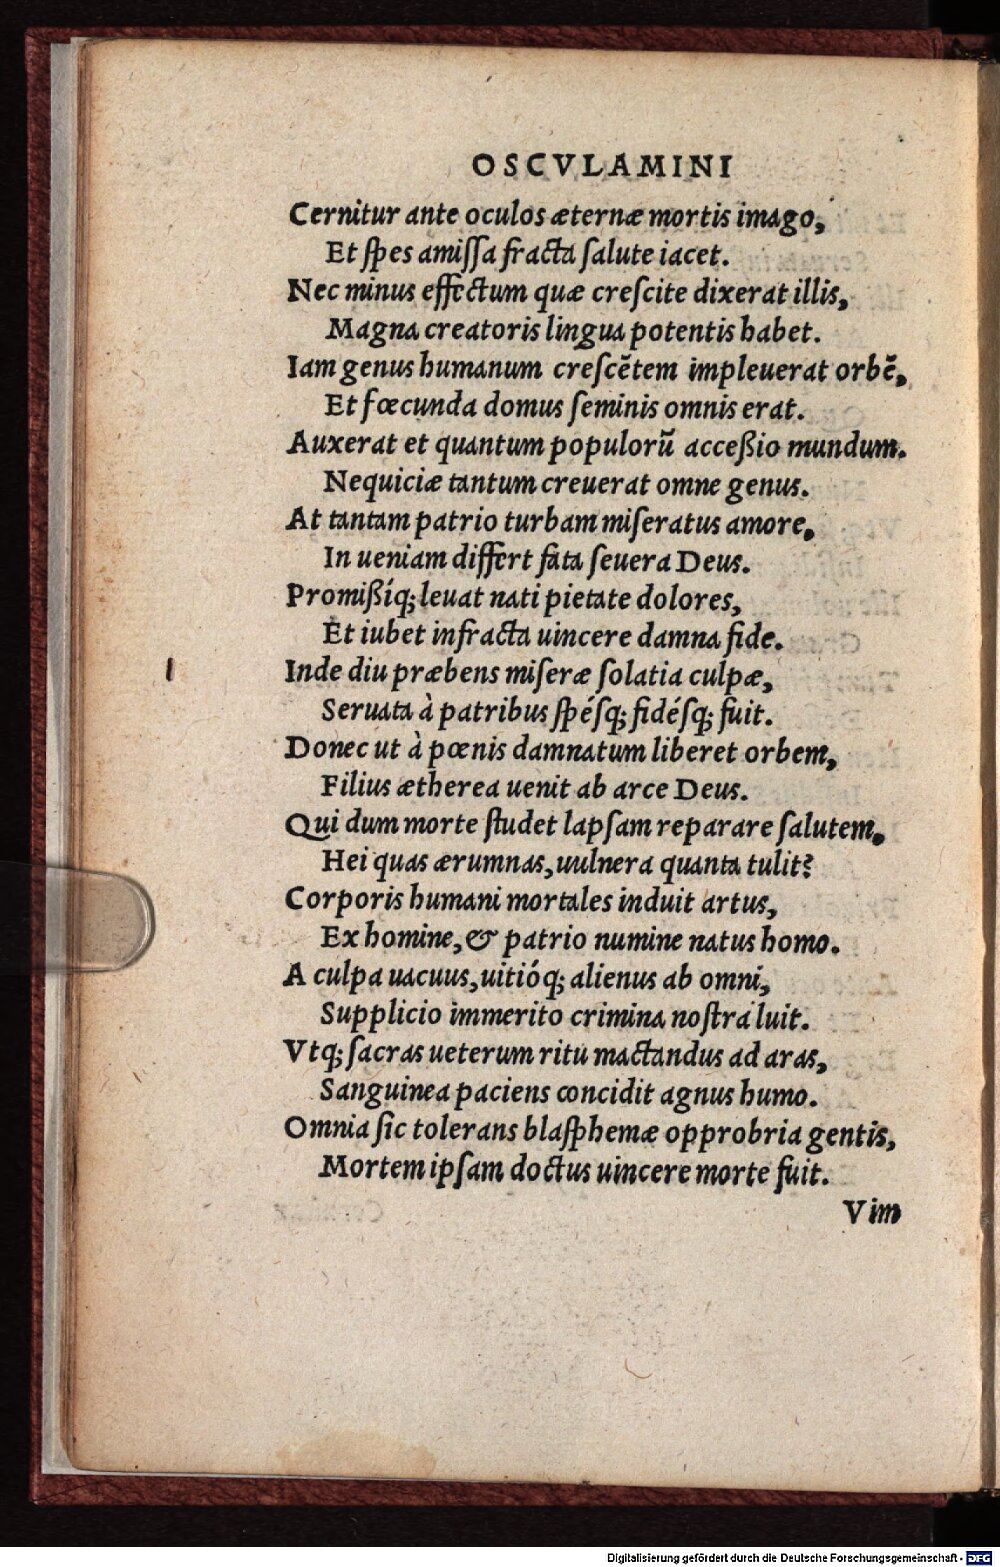 OSCVLAMINI
Cernitur ante oculos æternæ mortis imago,
Et ſpes amiſſa fracta ſalute iacet.
Nec minus effectum quæ creſcite dixerat illis,
Magna creatoris lingua potentis habet.
Iam genus humanum creſcẽtem impleuerat orbẽ,
Et fœcunda domus ſeminis omnis erat.
Auxerat et quantum populorũ acceßio mundum.
Nequiciæ tantum creuerat omne genus.
At tantam patrio turbam miſeratus amore,
In ueniam differt fata ſeuera Deus.
Promißíq; leuat nati pietate dolores,
Et iubet infracta uincere damna fide.
Inde diu præbens miſeræ ſolatia culpæ,
Seruata à patribus ſpéſq; fidéſq; fuit.
Donec ut à pœnis damnatum liberet orbem,
Filius ætherea uenit ab arce Deus.
Qui dum morte ſtudet lapſam reparare ſalutem,
Hei quas ærumnas, uulnera quanta tulit?
Corporis humani mortales induit artus,
Ex homine, & patrio numine natus homo.
A culpa uacuus, uitióq; alienus ab omni,
Supplicio immerito crimina noſtra luit.
Vtq; ſacras ueterum ritu mactandus ad aras,
Sanguinea paciens concidit agnus humo.
Omnia ſic tolerans blaſphemæ opprobria gentis,
Mortem ipſam doctus uincere morte fuit.
Vim
Digitalisierung gefördert durch die Deutsche Forschungsgemeinschaft - DFG